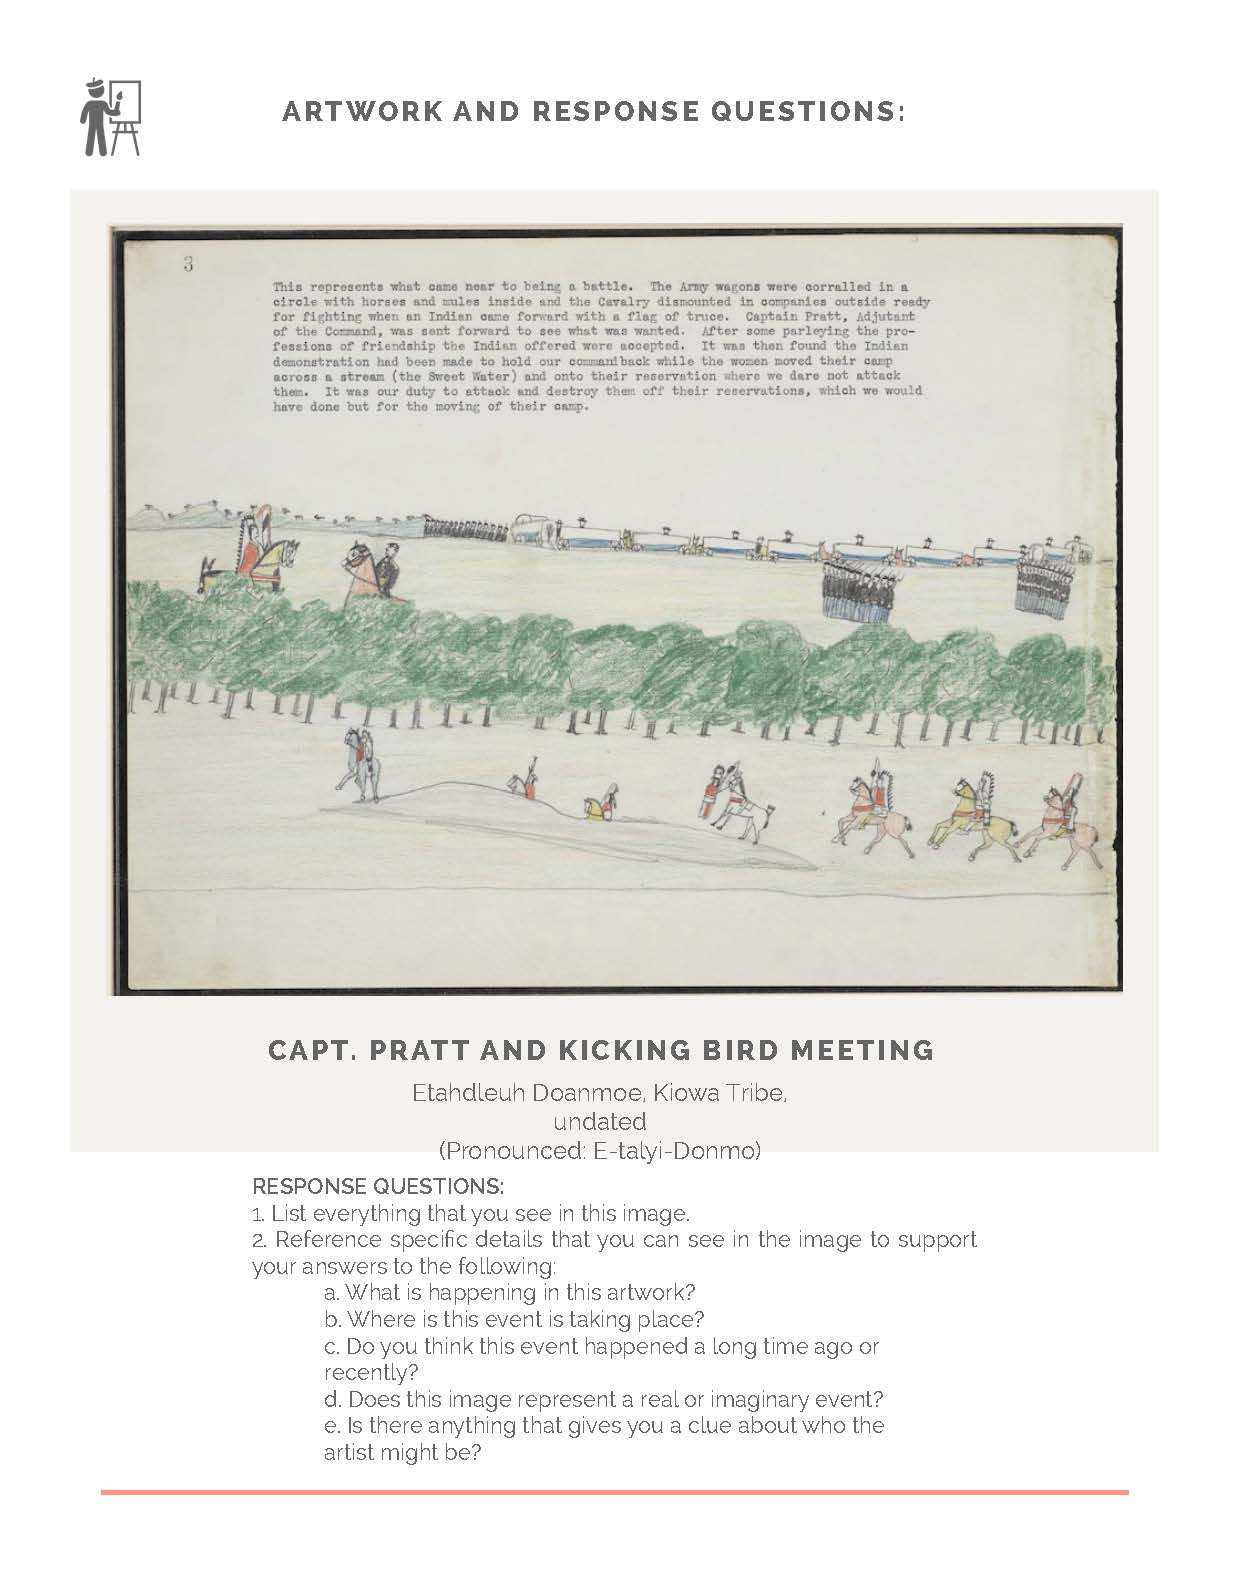 ARTWORK AND RESPONSE QUESTIONS:
3
This represents what came near to being a battle. The Army wagons were corralled in a
circle with horses and mules inside and the Cavalry dismounted in companies outside ready
for fighting when an Indian came forward with a flag of truce. Captain Pratt, Adjutant
of the Command, was sent forward to see what was wanted. After some parleying the pro-
fessions of friendship the Indian offered were accepted. It was then found the Indian
demonstration had been made to hold our command back while the women moved their camp
across a stream (the Sweet Water) and onto their reservation where we dare not attack
them. It was our duty to attack and destroy them off their reservations, which we would
have done but for the moving of their camp.
CAPT. PRATT AND KICKING BIRD MEETING
Etahdleuh Doanmoe, Kiowa Tribe,
undated
(Pronounced: E-talyi-Donmo)
RESPONSE QUESTIONS:
1. List everything that you see in this image.
2. Reference specific details that you can see in the image to support
your answers to the following:
a. What is happening in this artwork?
b. Where is this event is taking place?
c. Do you think this event happened a long time ago or
recently?
d. Does this image represent a real or imaginary event?
e. Is there anything that gives you a clue about who the
artist might be?